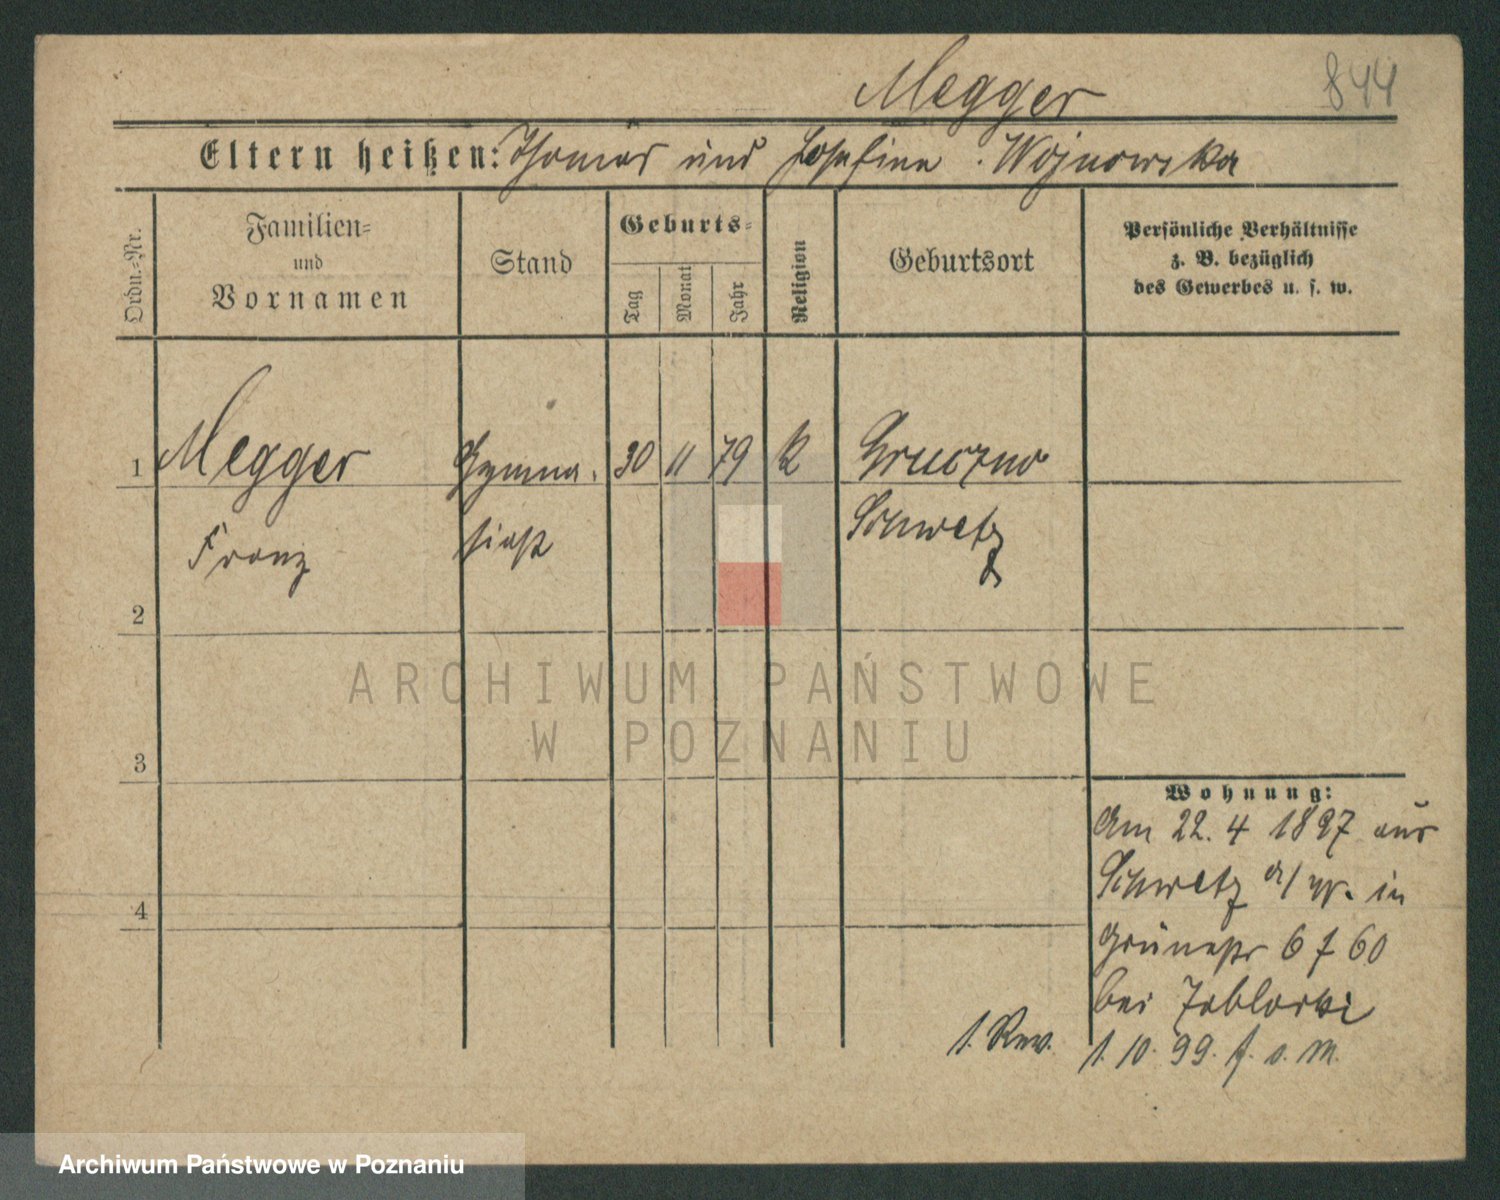 Megger
844
Eltern heißen: Thomas und Josefine . Wojnowska
Ordn.-Nr.
Familien-
und
Vornamen
Stand
Geburts-
Tag
Monat
Jahr
Religion
Geburtsort
Persönliche Verhältnisse
z. B. bezüglich
des Gewerbes u. s. w.
1 Megger Gymna. 30 11 79 K Gruczno
Franz siast Schwetz
2
3
4
Wohnung:
Am 22. 4 1897 aus
Schwetz a/W. in
Grünestr 6 f 60
bei
1. Rev. 1. 10. 99.
ARCHIWUM PAŃSTWOWE
W POZNANIU
Archiwum Państwowe w Poznaniu